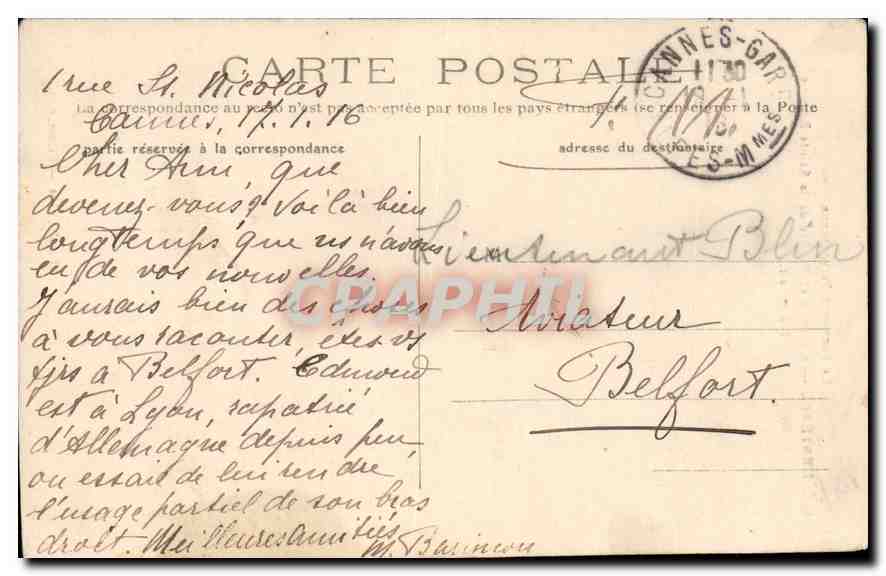 CARTE POSTALE
La correspondance au recto n'est pas acceptée par tous les pays étrangers (se renseigner à la Poste
partie réservée à la correspondance
adresse du destinataire
CANNES-GARE
11 30
ES-MMES
1 rue St. Nicolas
Cannes, 17.1.16
Cher Ami, que
devenez-vous? Voilà bien
longtemps que ns n'avons
eu de vos nouvelles.
J'aurais bien des choses
à vous raconter, êtes vs
tjrs à Belfort. Edmond
est à Lyon, rapatrié
d'Allemagne depuis peu,
on essaie de lui rendre
l'usage partiel de son bras
droit. Meilleures amitiés
M.
Lieutenant Blin
Aviateur
Belfort.
CPAPHIL